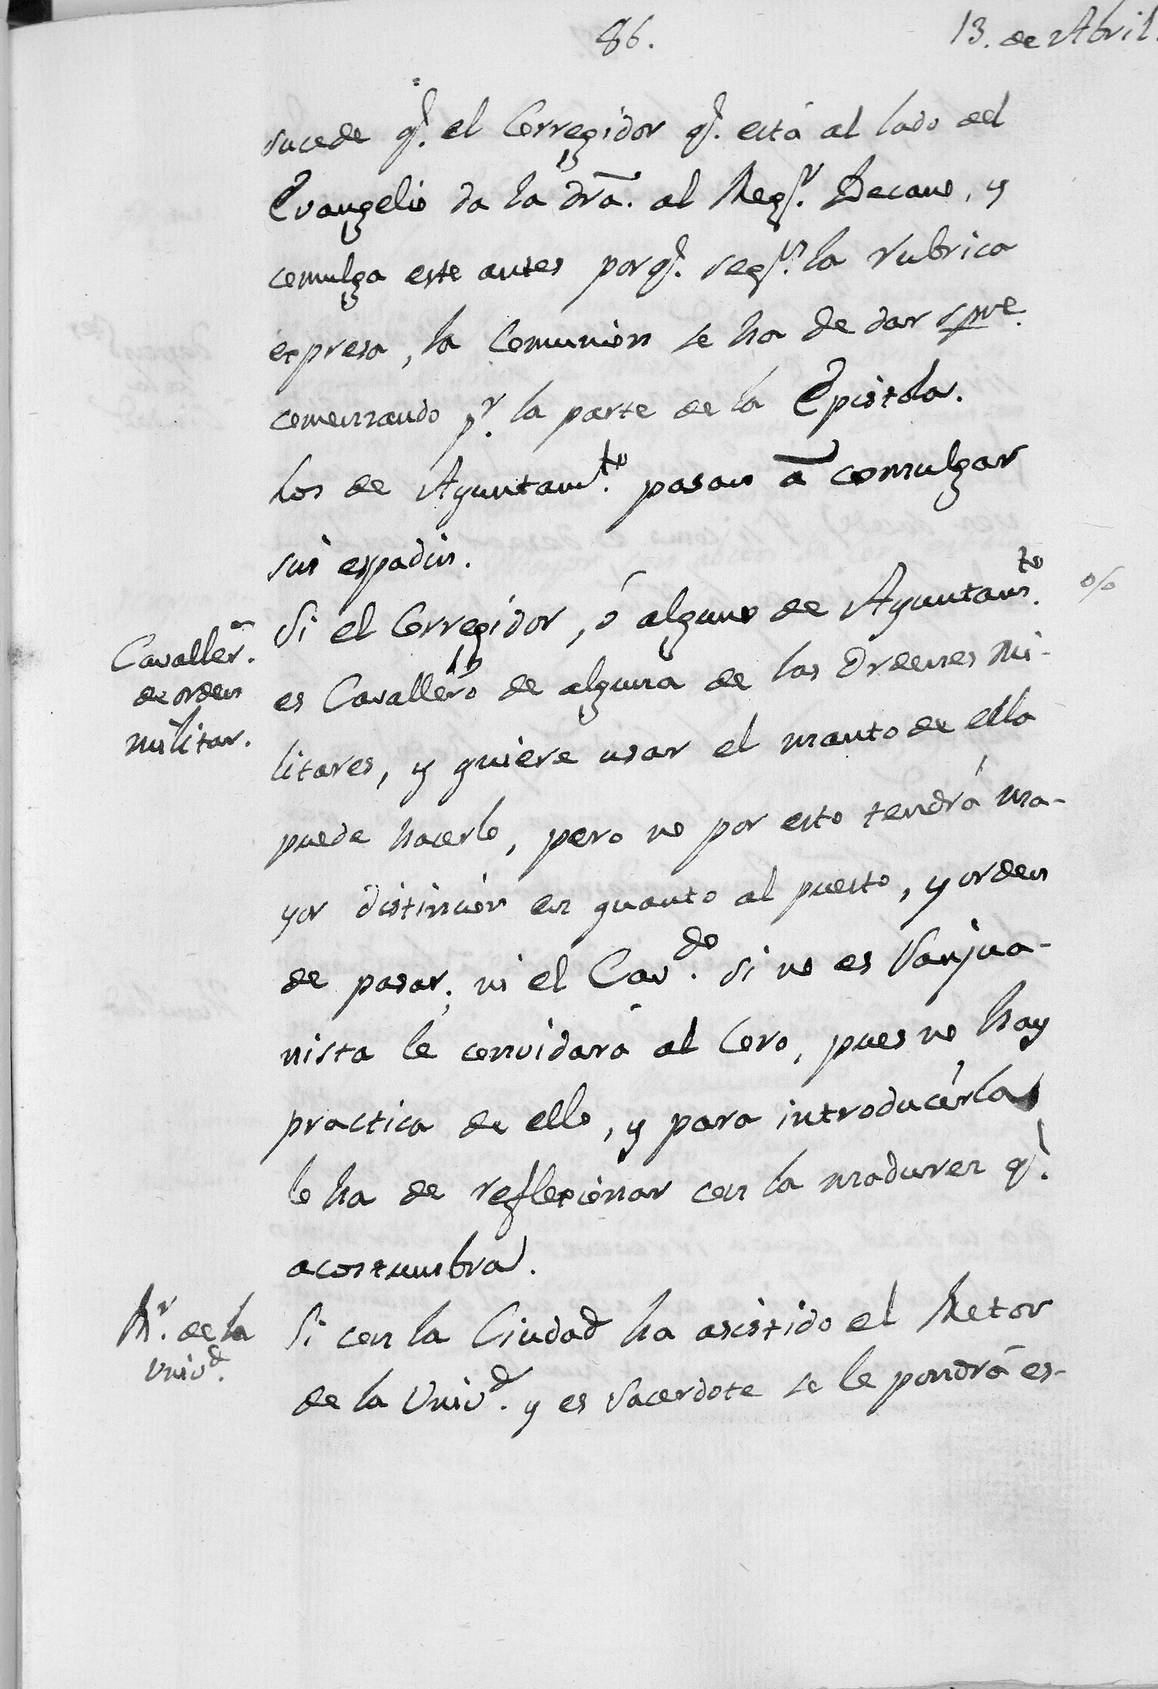 86.
13. de Abril.
sucede q.^e el Corregidor q.^e está al lado del
Evangelio da la dra. al Reg.^r Decano, y
comulga este antes porq.^e seg.^n la rubrica
expresa, la Comunion se ha de dar spre.
comenzando p.^r la parte de la Epistola.
Los de Ayuntam.^to pasan à comulgar
sin espadin.
Cavaller.^s
de orden
militar.
Si el Corregidor, ó alguno de Ayuntam.^to
es Cavallero de alguna de las Ordenes Mi-
litares, y quiere usar el manto de ella
puede hacerlo, pero no por esto tendrá ma-
yor distincion en quanto al puesto, y orden
de pasar; ni el Cav.^do si no es Sanjua-
nista le convidará al Coro, pues no hay
practica de ello, y para introducirla
lo ha de reflexionar con la madurez q.^e
acostumbra.
R.^r de la
Univ.^d
Si con la Ciudad ha asistido el Retor
de la Univ.^d y es sacerdote se le pondrá es-